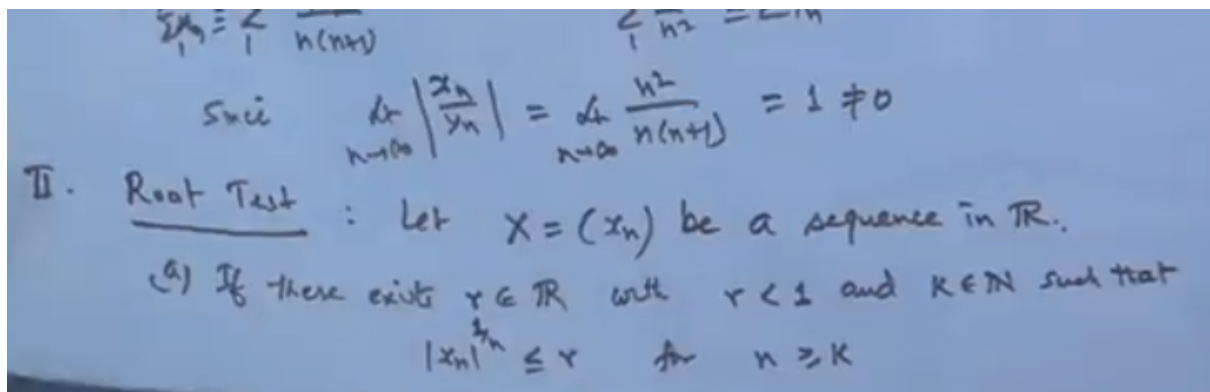 Σxₙ = Σ 1 n(n+1) Σ 1 n²
Since lt n→∞ |xₙ/yₙ| = lt n→∞ n²/n(n+1) = 1 ≠ 0
II. Root Test : Let X = (xₙ) be a sequence in ℝ.
(a) If there exists r ∈ ℝ with r < 1 and K ∈ ℕ such that
|xₙ|^{1/n} ≤ r for n ≥ K